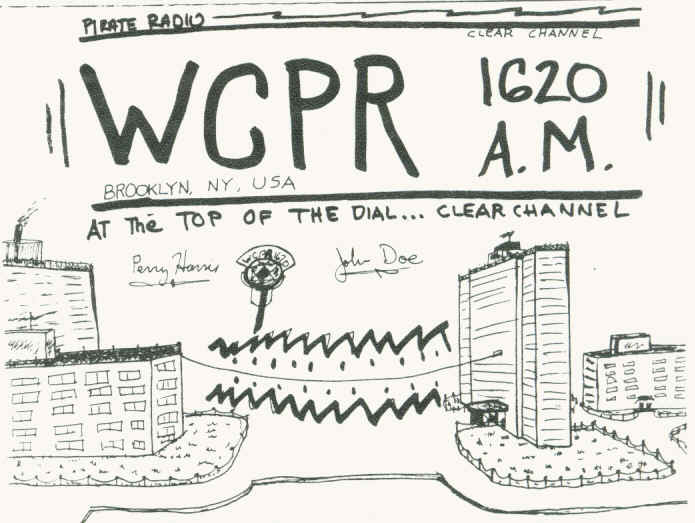 PIRATE RADIO
CLEAR CHANNEL
WCPR
1620
A.M.
BROOKLYN, NY, USA
AT The TOP OF THE DIAL... CLEAR CHANNEL
Perry Harris
John Doe
WCPR 1620